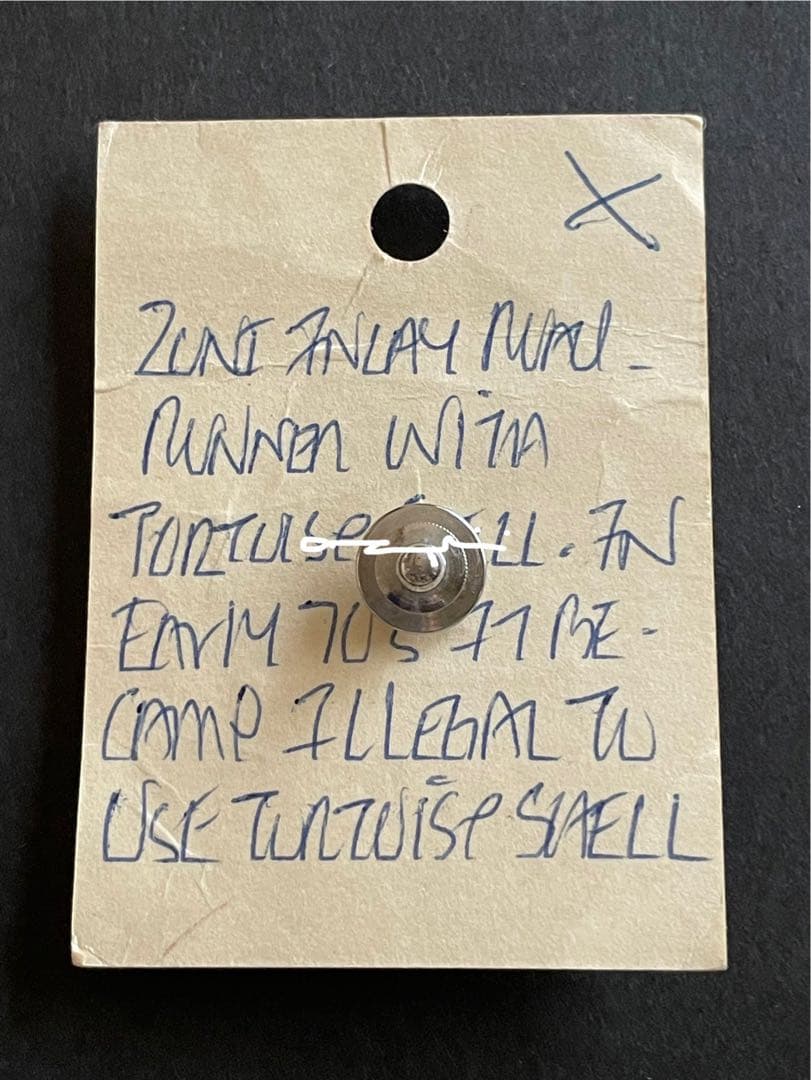 X
ZUNI INLAY ROAD-
RUNNER WITH
TORTOISE SHELL. IN
EARLY 70'S IT BE-
CAME ILLEGAL TO
USE TORTOISE SHELL